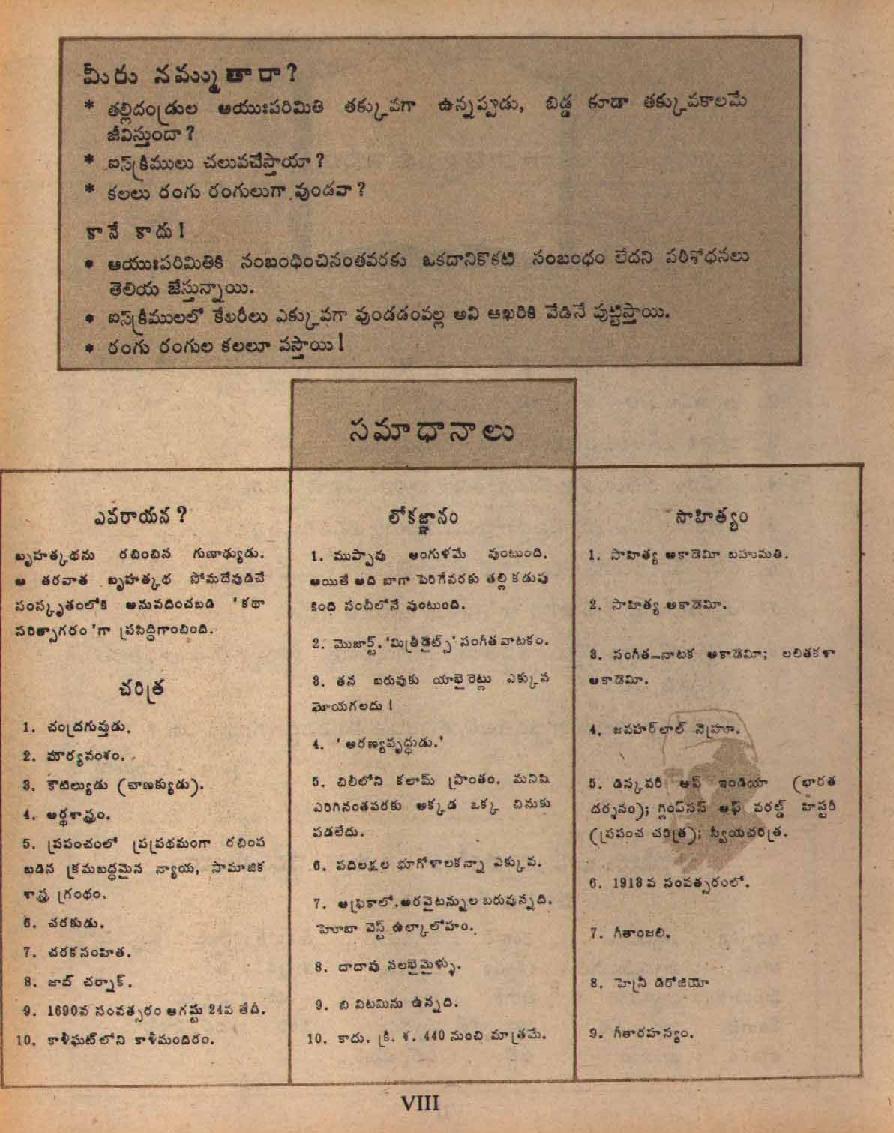 మీరు నమ్ముతారా?
* తల్లిదండ్రుల ఆయుఃపరిమితి తక్కువగా ఉన్నప్పుడు, బిడ్డ కూడా తక్కువకాలమే
జీవిస్తుందా?
* ఐస్‌క్రీములు చలువచేస్తాయా?
* కలలు రంగు రంగులుగా వుండవా?
కానే కాదు!
* ఆయుఃపరిమితికి సంబంధించినంతవరకు ఒకదానికొకటి సంబంధం లేదని పరిశోధనలు
తెలియ జేస్తున్నాయి.
* ఐస్‌క్రీములలో కేలరీలు ఎక్కువగా వుండడంవల్ల అవి ఆఖరికి వేడినే పుట్టిస్తాయి.
* రంగు రంగుల కలలూ వస్తాయి!
సమాధానాలు
ఎవరాయన?
బృహత్కథను రచించిన గుణాఢ్యుడు.
ఆ తరవాత బృహత్కథ సోమదేవుడిచే
సంస్కృతంలోకి అనువదించబడి 'కథా
సరిత్సాగరం'గా ప్రసిద్ధిగాంచింది.
చరిత్ర
1. చంద్రగుప్తుడు.
2. మౌర్యవంశం.
3. కౌటిల్యుడు (చాణక్యుడు).
4. అర్థశాస్త్రం.
5. ప్రపంచంలో ప్రప్రథమంగా రచింప
బడిన క్రమబద్ధమైన న్యాయ, సామాజిక
శాస్త్ర గ్రంథం.
6. చరకుడు.
7. చరకసంహిత.
8. జాబ్ చర్నాక్.
9. 1690వ సంవత్సరం ఆగస్టు 24వ తేదీ.
10. కాళీఘాట్‌లోని కాళీమందిరం.
లోకజ్ఞానం
1. ముప్పావు అంగుళమే వుంటుంది.
అయితే అది బాగా పెరిగేవరకు తల్లి కడుపు
కింది సంచీలోనే వుంటుంది.
2. మొజార్ట్. 'మిత్రీడైట్స్' సంగీతనాటకం.
3. తన బరువుకు యాభైరెట్లు ఎక్కువ
మోయగలదు!
4. 'అరణ్యవృద్ధుడు.'
5. చిలీలోని కలామ్ ప్రాంతం. మనిషి
ఎరిగినంతవరకు అక్కడ ఒక్క చినుకు
పడలేదు.
6. పదిలక్షల భూగోళాలకన్నా ఎక్కువ.
7. ఆఫ్రికాలో. అరవైటన్నుల బరువున్నది.
హెూబా వెస్ట్ ఉల్కాలోహం.
8. దాదాపు నలభైమైళ్ళు.
9. బి విటమిను ఉన్నది.
10. కాదు. క్రీ. శ. 440 నుంచి మాత్రమే.
సాహిత్యం
1. సాహిత్య అకాడెమీ బహుమతి.
2. సాహిత్య అకాడెమీ.
3. సంగీత-నాటక అకాడెమీ; లలితకళా
అకాడెమీ.
4. జవహర్‌లాల్ నెహ్రూ.
5. డిస్కవరీ ఆఫ్ ఇండియా (భారత
దర్శనం); గ్లింప్సెస్ ఆఫ్ వరల్డ్ హిస్టరీ
(ప్రపంచ చరిత్ర); స్వీయచరిత్ర.
6. 1913వ సంవత్సరంలో.
7. గీతాంజలి.
8. హెన్రీ డిరోజియో
9. గీతారహస్యం.
VIII